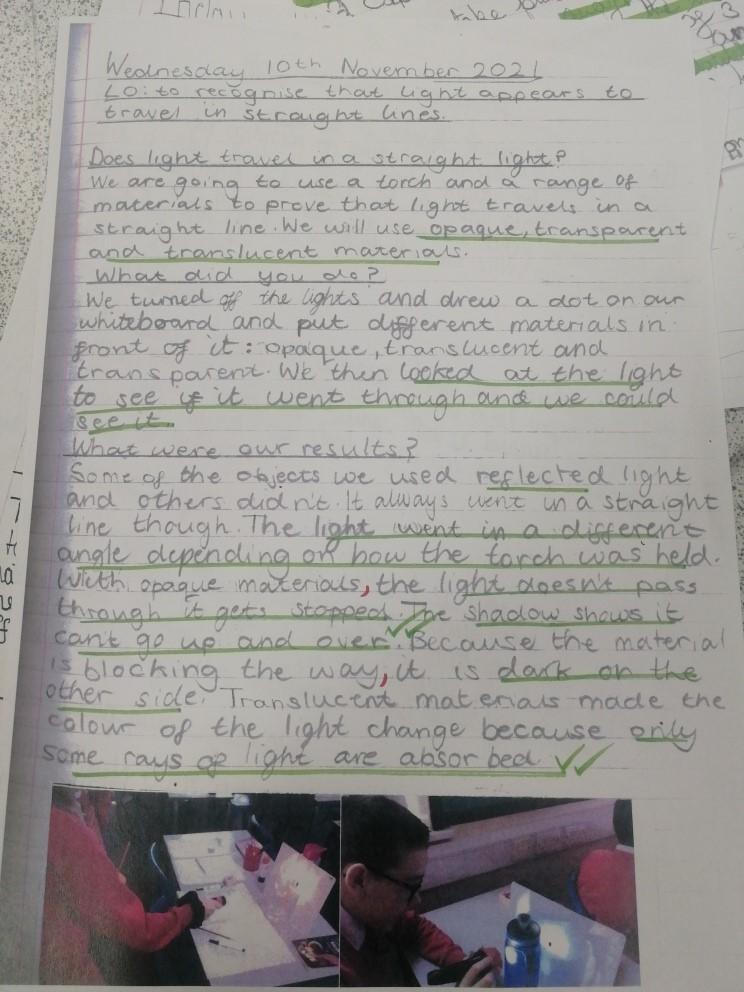 Wednesday 10th November 2021
LO: to recognise that light appears to
travel in straight lines.
Does light travel in a straight light?
We are going to use a torch and a range of
materials to prove that light travels in a
straight line. We will use opaque, transparent
and translucent materials.
What did you do?
We turned off the lights and drew a dot on our
whiteboard and put different materials in
front of it: opaque, translucent and
transparent. We then looked at the light
to see if it went through and we could
see it.
What were our results?
Some of the objects we used reflected light
and others didn't. It always went in a straight
line though. The light went in a different
angle depending on how the torch was held.
With opaque materials, the light doesn't pass
through it gets stopped. The shadow shows it
can't go up and over. Because the material
is blocking the way, it is dark on the
other side. Translucent materials made the
colour of the light change because only
some rays of light are absorbed.